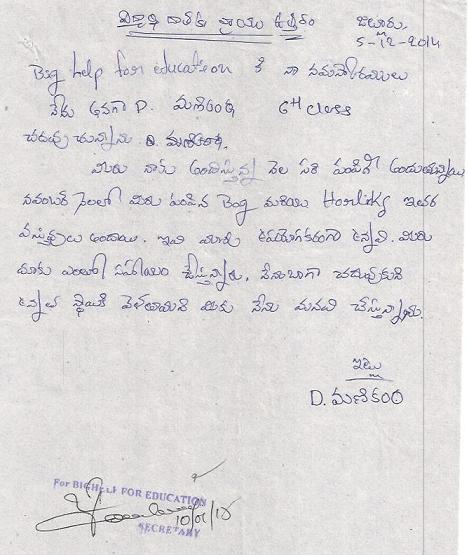 విద్యార్థి దాతకు వ్రాయు ఉత్తరం
ఏలూరు,
5-12-2014
Big help for education కి నా నమస్కారములు
నేను అనగా D. మణికంఠ 6th class
చదువు చున్నాను. D. మణికంఠ.
మీరు నాకు అందిస్తున్న నెల సరి పంపినవి అందుతున్నాయి
నవంబర్ నెలలో మీరు పంపిన Bag మరియు Horlicks ఇతర
వస్తువులు అందాయి. ఇవి మాకు ఉపయోగకరంగా ఉన్నవి. మీరు
మాకు ఎంతో సహాయం చేస్తున్నారు. నేను బాగా చదువుకుని
ఉన్నత స్థాయికి వెళతానని మీకు నేను మనవి చేస్తున్నాను.
ఇట్లు
D. మణికంఠ
For BIGHELP FOR EDUCATION
10/01/15
SECRETARY